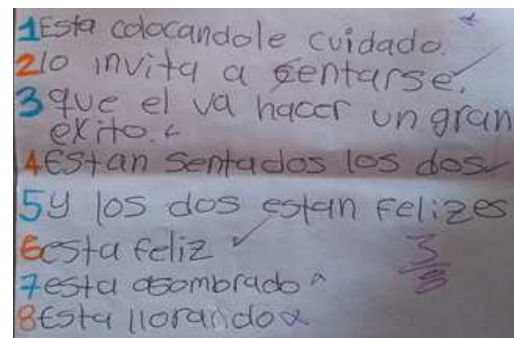 1 Esta colocandole cuidado.
2 lo invita a sentarse.
3 que el va hacer un gran
exito.
4 EStan sentados los dos
5 y los dos estan Felizes
6 esta feliz
7 esta asombrado
8 Esta llorando
3
8